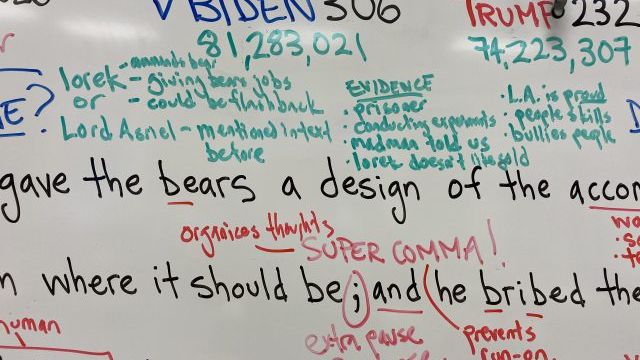 ✓ BIDEN 306
TRUMP 232
81,283,021
74,223,307
r
E?
Iorek - commands bears
- giving bears jobs
or - could be flashback
Lord Asriel - mentioned in text
before
EVIDENCE
• prisoner
• conducting experiments
• madman told us
• Iorek doesn't like gold
• L.A. is proud
• people skills
• bullies people
gave the bears a design of the accom
organizes thoughts
SUPER COMMA!
n where it should be; and he bribed the
human
extra pause
prevents
run-on